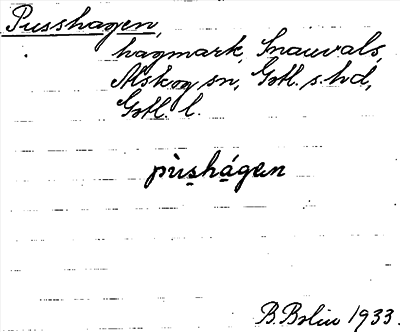 Pusshagen,
hagmark, Snauvals,
Alskog sn, Gotl. s. hd,
Gotl. l.
pùs̱há̱gɛn
B. Bolin 1933.